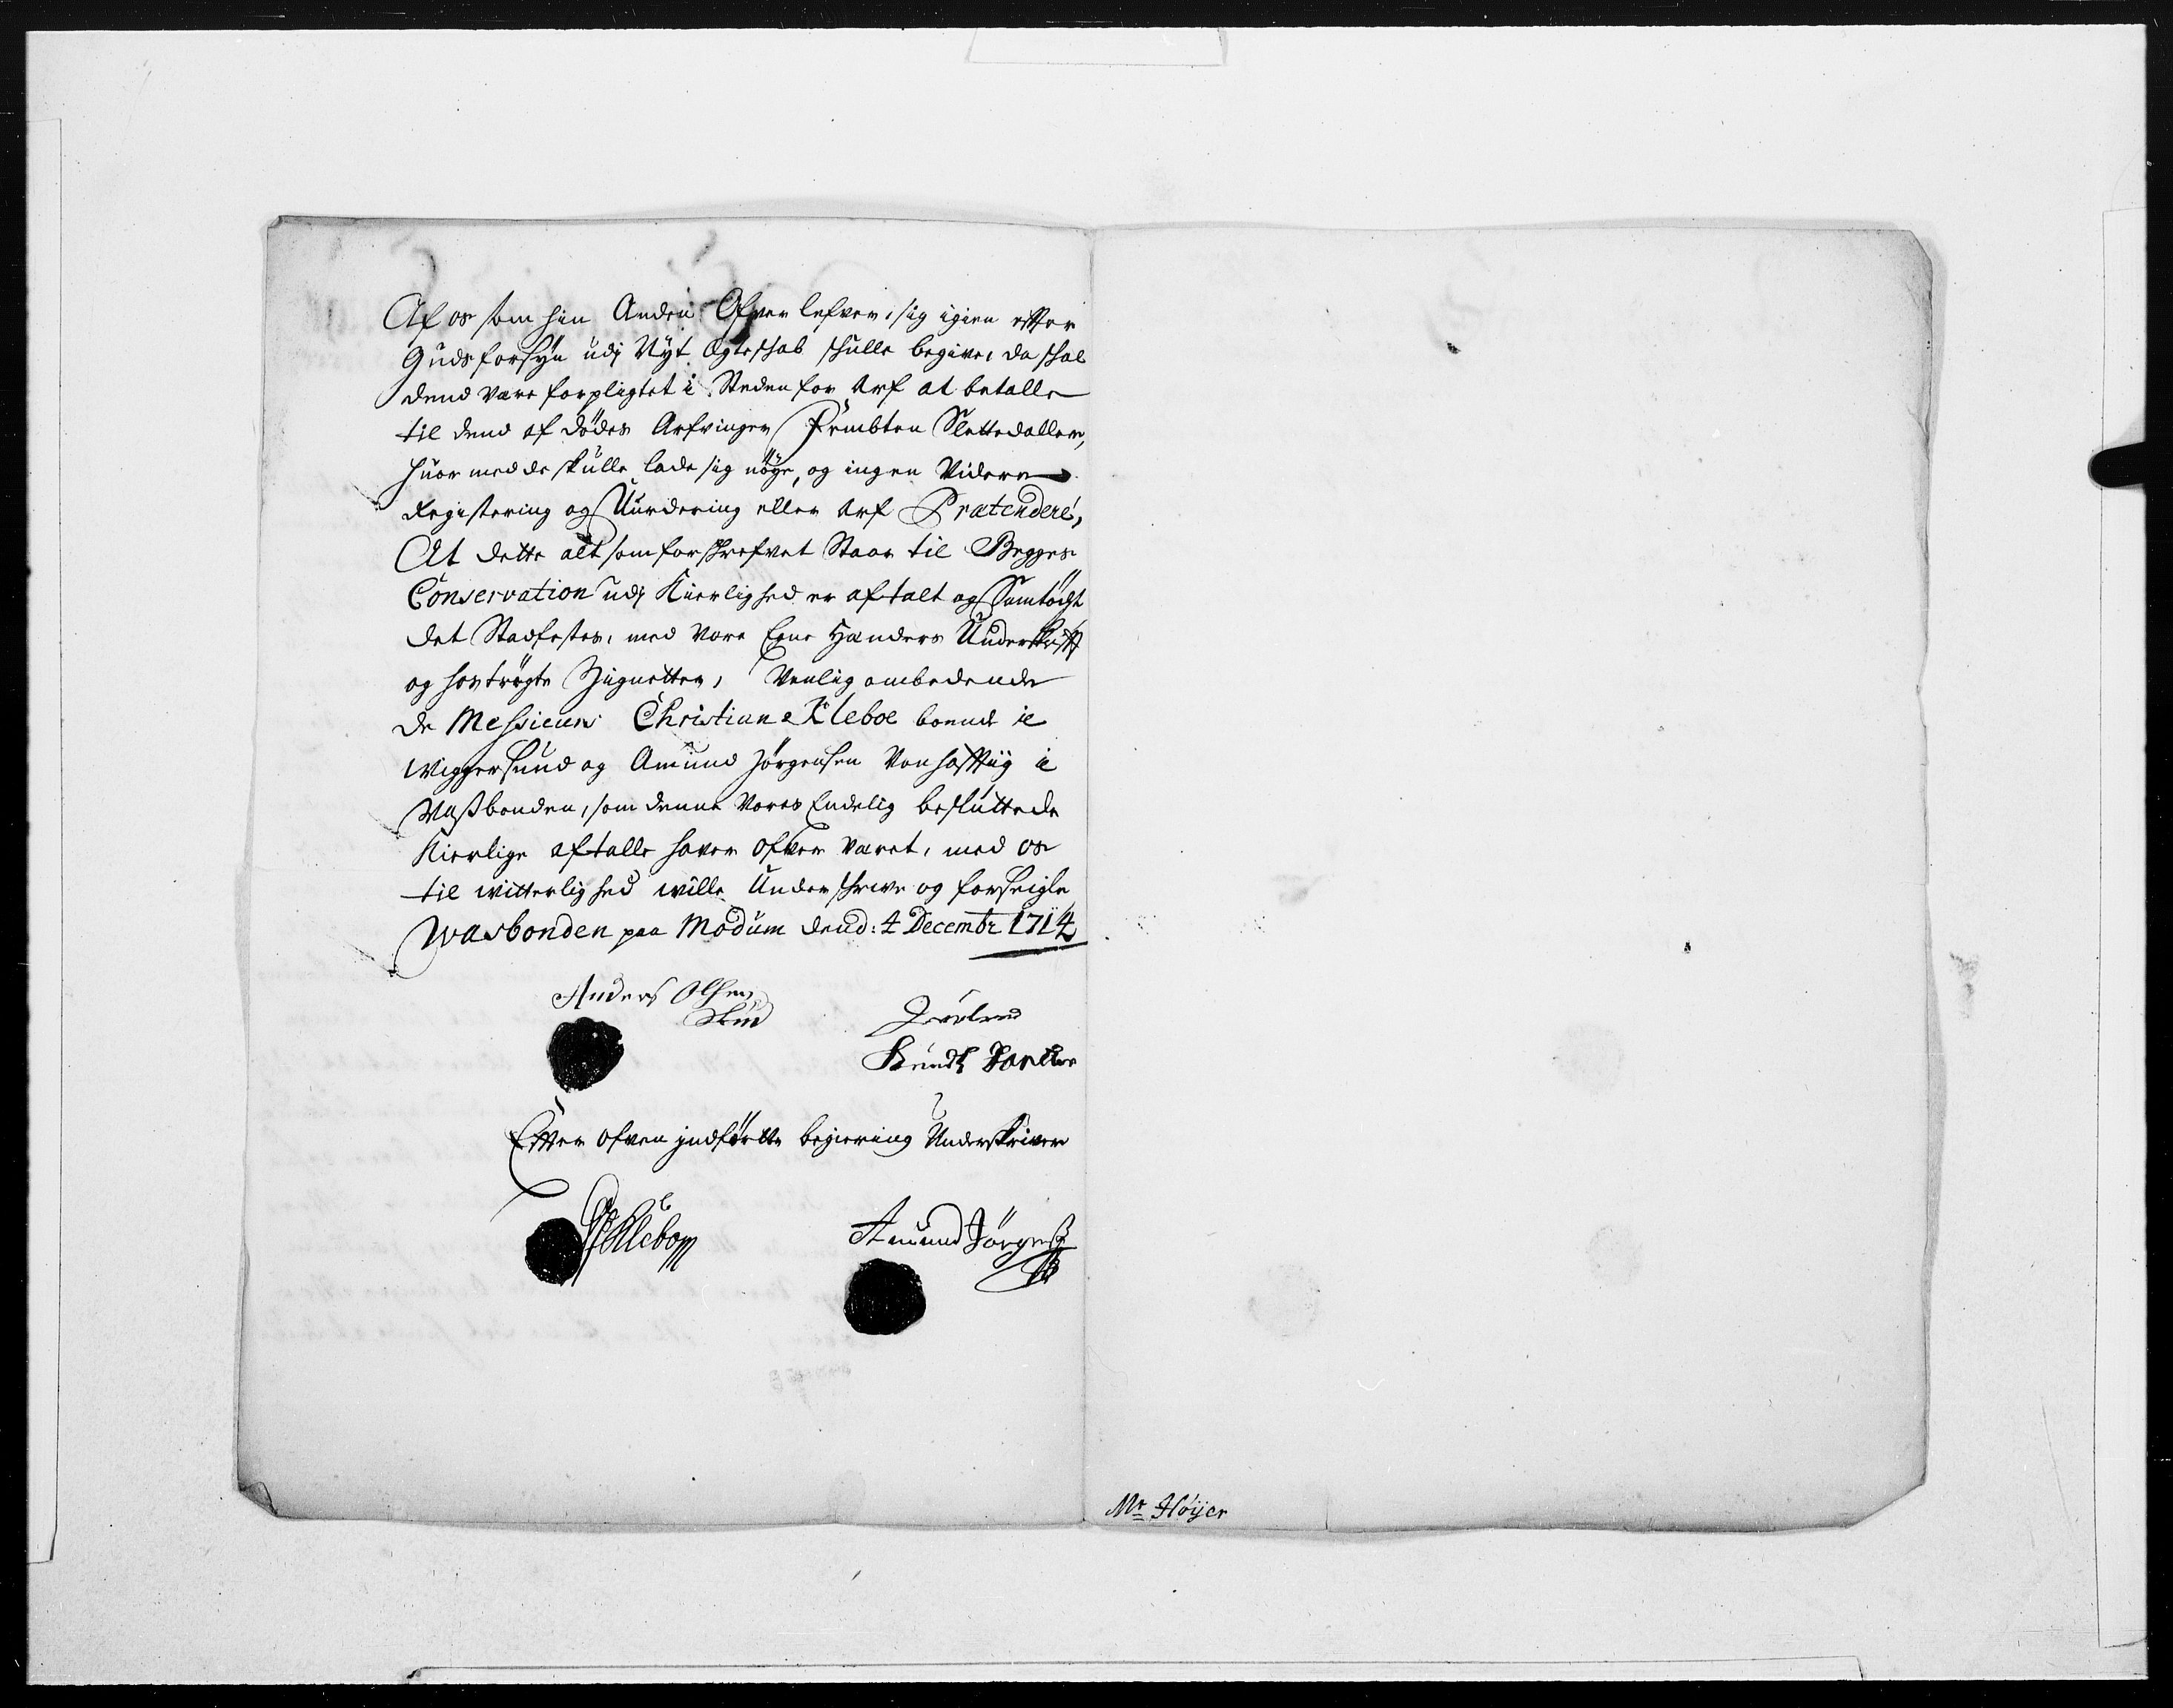 Af os som hin Anden Ofver lefver, sig igien efter
Guds forsyn udj Nÿt Ægteschab schulle begive, da schal
dend være forpligtet i Steden for Arf at betalle
til dend af dödes Arfvinger Fembten Slettedaller,
huor med de skulle lade sig nöye, og ingen Videre
Registering og Vurdering eller Arf Prætendere,
At dette alt som forschrefvet Staar til Begges
Conservation udj Kierlighed er aftalt og Samtöcht
det Stadfestes, med Vore Egne Hænders Underskrifft
og hoströgte Zignetter, Venlig ombedende
de Messieurs Christian Kleboe boende i
Wiggersund og Amund Jörgensen Vonhafftig i
Wassbonden, som denne Vores Endelig besluttede
Kierlige aftalle haver ofver været, med os
til witterlighed wille Underschrive og forseigle
Wasbonden paa Modum dend: 4 Decembr 1714
Anders Olsen
Knudts Datter
Efter ofven indförtte begiering Underskriver
Kleboe
Amund Jörgens
Mr Höÿer